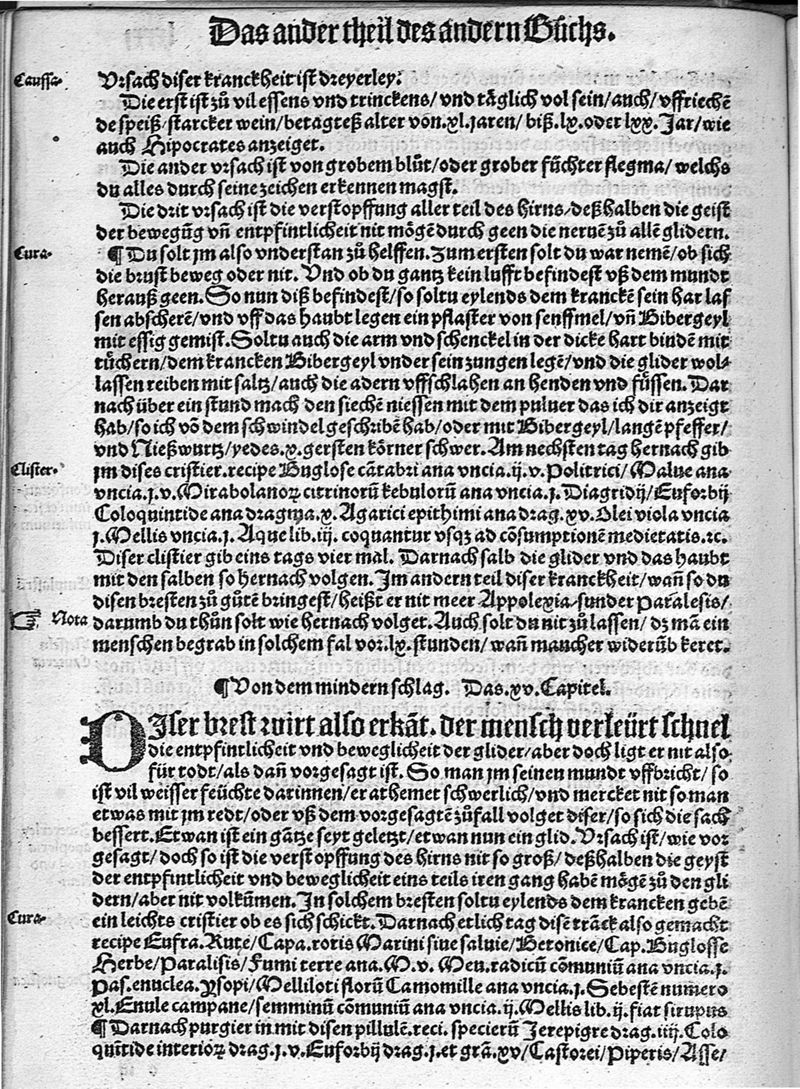 Das ander theil des andern Bůchs.
Caussa.
Vrsach diser kranckheit ist dreyerley.
Die erst ist zů vil essens vnd trinckens/ vnd täglich vol sein/ auch/ vffriechē
de speiß/ starcker wein/ betagteß alter von .xl. jaren/ biß .lx. oder lxx. Jar/ wie
auch Hipocrates anzeiget.
Die ander vrsach ist von grobem blůt/ oder grober füchter flegma/ welchs
du alles durch seine zeichen erkennen magst.
Die drit vrsach ist die verstopffung aller teil des hirns/ deßhalben die geist
der bewegūg vñ entpfintlicheit nit mögē durch geen die neruē zů allē glidern.
Cura.
¶ Du solt jm also vnderstan zů helffen. Zum ersten solt du war nemē/ ob sich
die brust beweg oder nit. Vnd ob du gantz kein lufft befindest vß dem mundt
herauß geen. So nun diß befindest/ so soltu eylends dem kranckē sein har las
sen abscherē/ vnd vff das haubt legen ein pflaster von senffmel/ vñ Bibergeyl
mit essig gemist. Soltu auch die arm vnd schenckel in der dicke hart bindē mit
tůchern/ dem krancken Bibergeyl vnder sein zungen legē/ vnd die glider wol
lassen reiben mit saltz/ auch die adern vffschlahen an henden vnd füssen. Dar
nach über ein stund mach den siechē niessen mit dem puluer das ich dir anzeigt
hab/ so ich vō dem schwindel geschribē hab/ oder mit Bibergeyl/ langē pfeffer/
vnd Nießwurtz/ yedes .x. gersten körner schwer. Am nechsten tag hernach gib
Clister.
jm dises cristier. recipe Buglose cātabri ana vncia .ij. v. Politrici/ Malue ana
vncia .j. v. Mirabolanoꝝ citrinorū kebulorū ana vncia .j. Diagridij/ Euforbij
Coloquintide ana dragma .x. Agarici epithimi ana drag. xv. Olei viola vncia
j. Mellis vncia .j. Aque lib. iij. coquantur vsqꝫ ad cōsumptionē medietatis. ꝛc.
Diser clistier gib eins tags vier mal. Darnach salb die glider vnd das haubt
mit den salben so hernach volgen. Im andern teil diser kranckheit/ wañ so du
disen bresten zů gůtē bringest/ heißt er nit meer Appolexia/ sunder Paralesis/
Nota
darumb du thůn solt wie hernach volget. Auch solt du nit zů lassen/ dz mā ein
menschen begrab in solchem fal vor .lx. stunden/ wañ mancher widerūb keret.
¶ Von dem mindern schlag. Das .xv. Capitel.
DIser brest wirt also erkāt. der mensch verleürt schnel
die entpfintlicheit vnd beweglicheit der glider/ aber doch ligt er nit also
für todt/ als dañ vorgesagt ist. So man jm seinen mundt vffbricht/ so
ist vil weisser feüchte darinnen/ er athemet schwerlich/ vnd mercket nit so man
etwas mit jm redt/ oder vß dem vorgesagtē zůfall volget diser/ so sich die sach
bessert. Etwan ist ein gātze seyt geletzt/ etwan nun ein glid. Vrsach ist/ wie vor
gesagt/ doch so ist die verstopffung des hirns nit so groß/ deßhalben die geyst
der entpfintlicheit vnd beweglicheit eins teils iren gang habē mögē zů den gli
dern/ aber nit volkūmen. In solchem bresten soltu eylends dem krancken gebē
Cura.
ein leichts cristier ob es sich schickt. Darnach etlich tag disē trāck also gemacht
recipe Eufra. Rute/ Capa. roris Marini siue saluie/ Betonice/ Cap. Buglosse
Herbe/ Paralisis/ Fumi terre ana. M. v. Meu. radicū cōmuniū ana vncia .j.
Pas. enuclea. ysopi/ Melliloti florū Camomille ana vncia .j. Sebestē numero
xl. Enule campane/ semminū cōmuniū ana vncia .ij. Mellis lib. ij. fiat sirupus
¶ Darnach purgier in mit disen pillulē. reci. specierū Jerepigre drag. iiij. Colo
quītide interioꝝ drag. j. v. Euforbij drag. j. et grā. xv/ Castorei/ Piperis/ Asse/